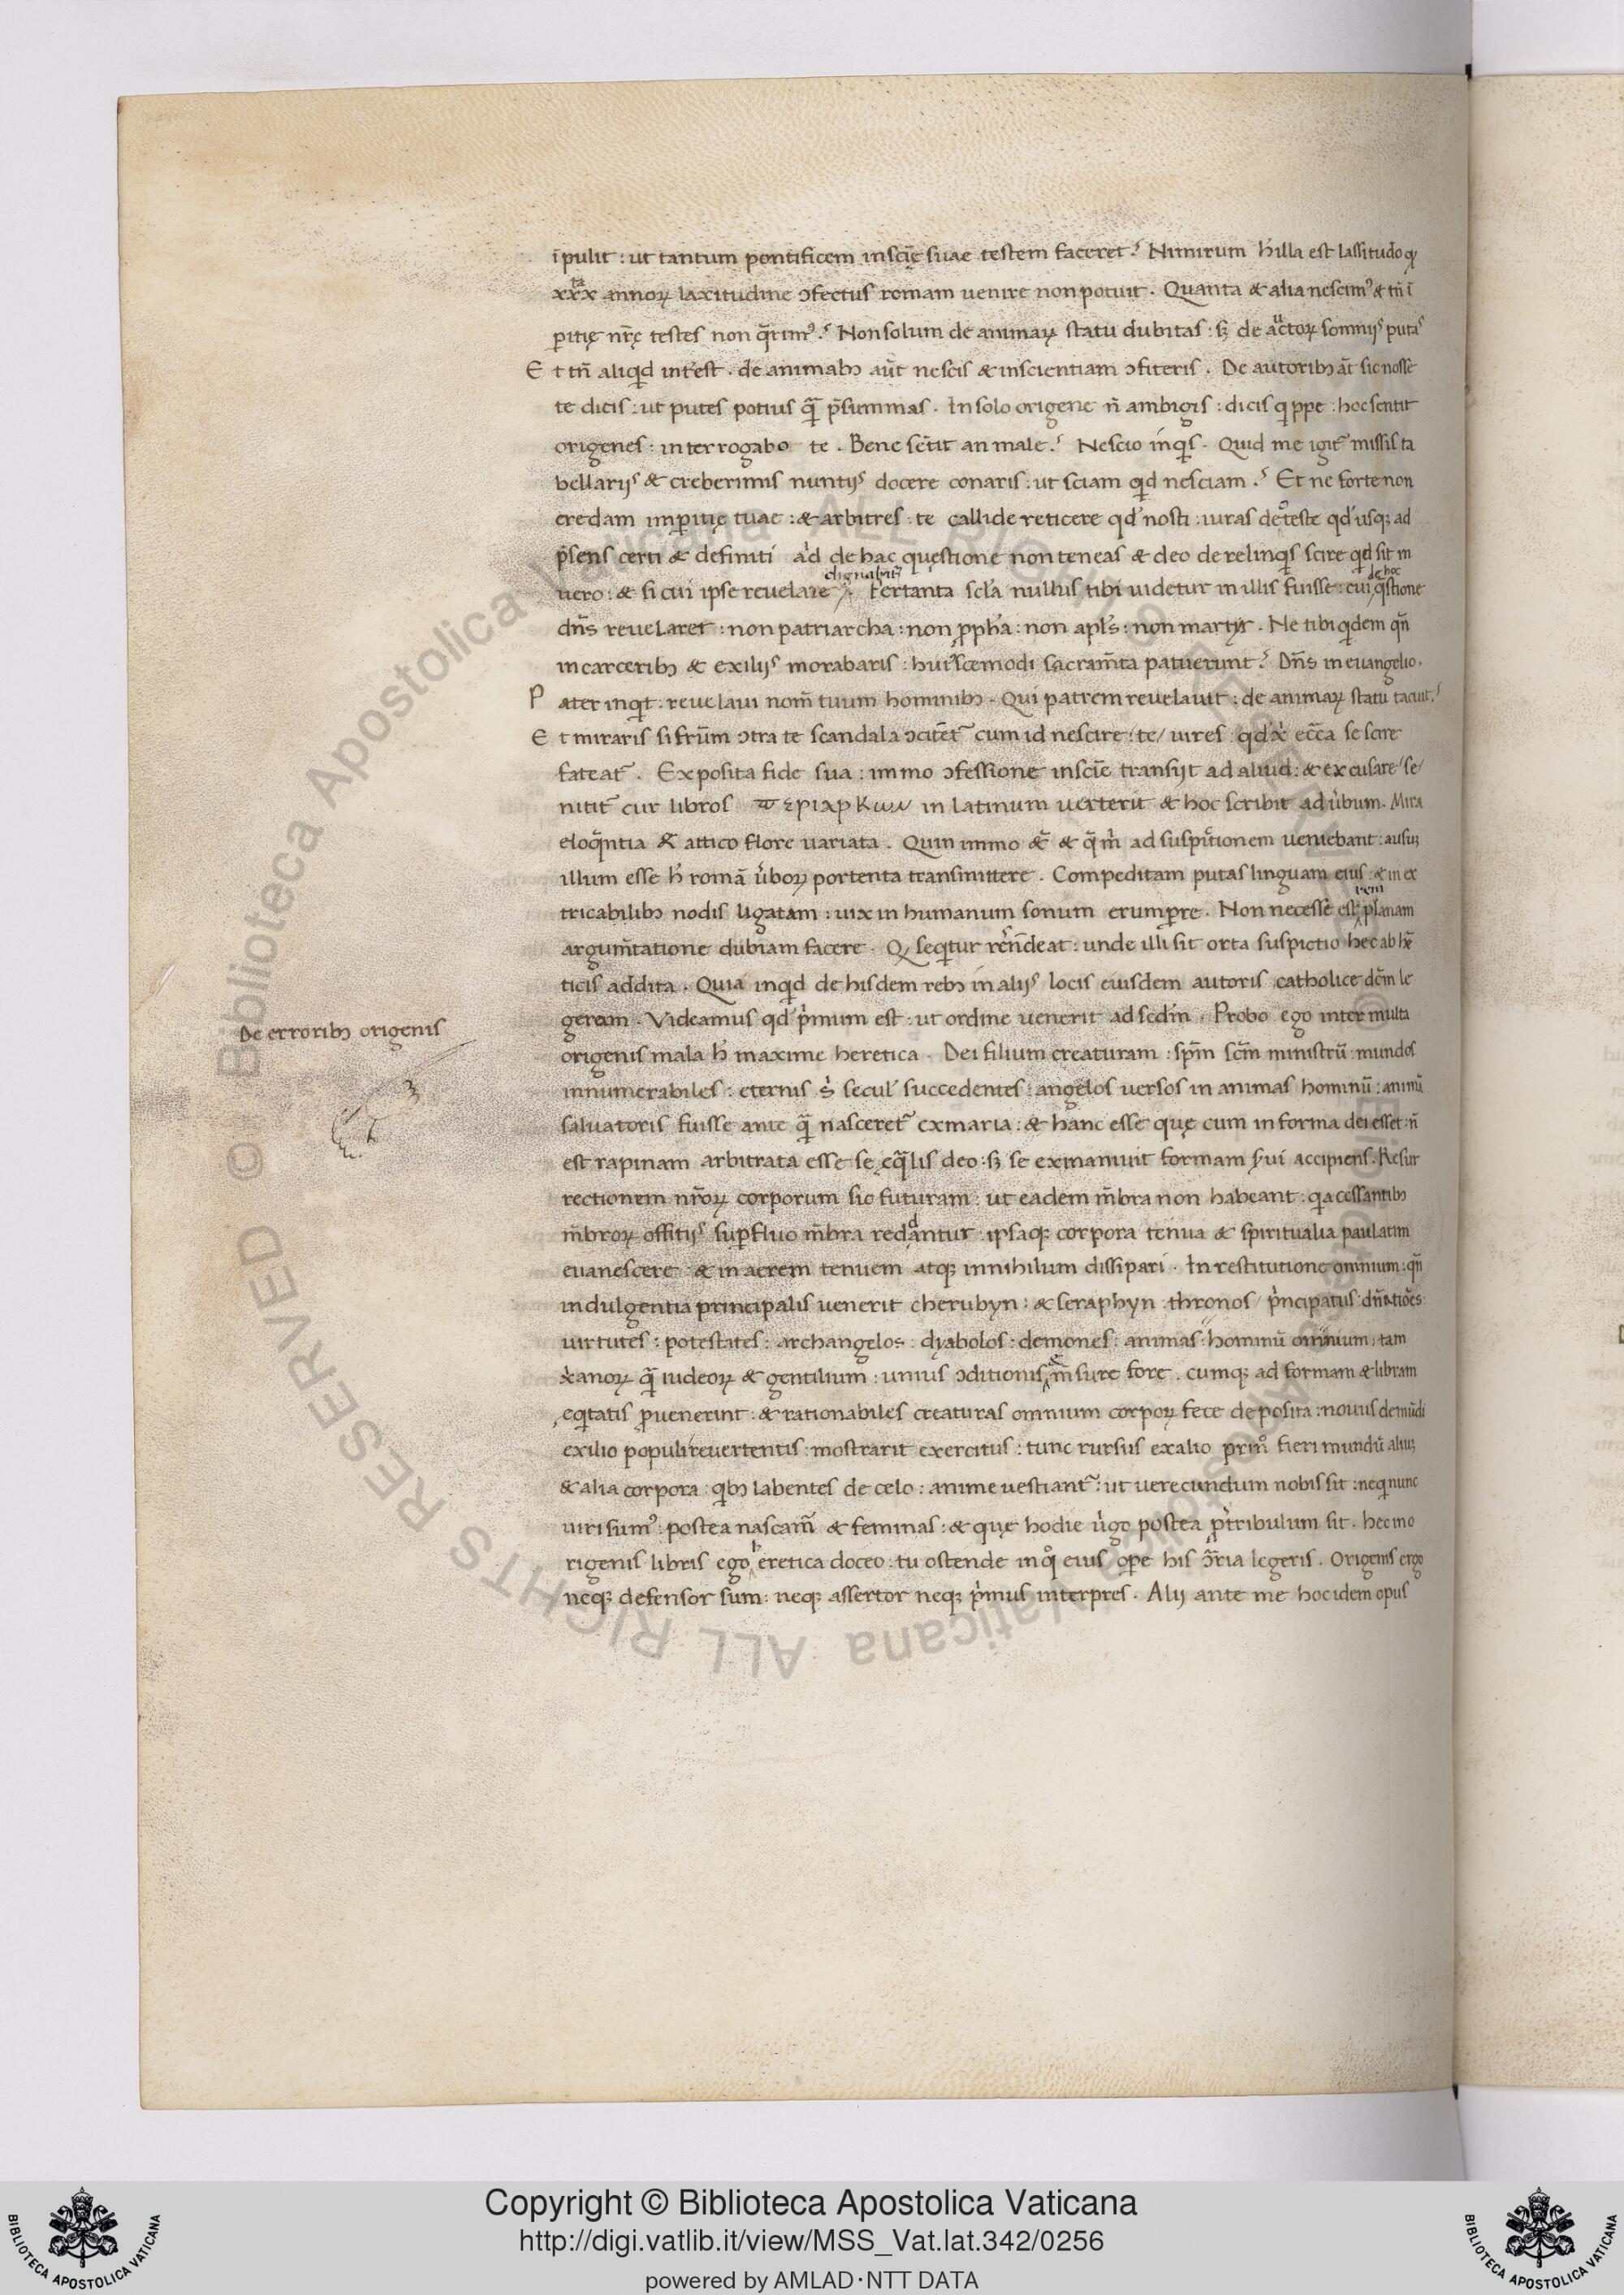 īpulit : ut tantum pontificem insciẽ suae testem faceret? Nimirum h̓ illa est lassitudo qꝫ
xxx^{ta} annoꝝ laxitudine ɔfectus romam uenire non potuit . Quanta & alia nescimꝰ & tñ ī
ꝑitię nr̄ę testes non q̄rimꝰ? Non solum de animaꝝ statu dubitas : sꝫ de auctoꝝ somnijs putas
Et tñ aliqid int̓est . de animabꝫ aūt nescis & inscientiam ɔfiteris . De autoribꝫ āt sic nosse
te dicis : ut putes potius q̄ p̄summas . In solo origene ñ ambigis : dicis qippe : hoc sentit
origenes : interrogabo te . Bene sētit an male? Nescio inqis . Quid me igit̃ missis ta
bellarijs & creberimis nuntijs docere conaris : ut sciam qid nesciam .? Et ne forte non
credam imꝑitię tuae : & arbitres te callide reticere qd̓ nosti : iuras deo teste qd̓ usqꝫ ad
p̄sens certi & definiti ad de hac quęstione non teneas & deo derelinqis scire qid sit in
uero : & si cui ipse reuelare dignabit̃ . Per tanta scl̓a nullus tibi uidetur in illis fuisse : cui de hoc qstione
dñs reuelaret : non patriarcha : non ꝓph̓a : non apl̓s : non martyr . Ne tibi qidem qñ
in carceribꝫ & exilijs morabaris : huiuscemodi sacram̄ta patuerunt? Dñs in euangelio .
Pater inqit : reuelaui nom̄ tuum hominibꝫ . Qui patrem reuelauit : de animaꝝ statu tacuit?
Et miraris si fr̄um ɔtra te scandala ɔcitēt̃ cum id nescire / te / iures : qd̓ x̓ ecc̄a se scire
fateat̃ . Exposita fide sua : immo ɔfessione inscīe transijt ad aliud : & excusare / se /
nitit̃ cur libros περιαρκων in latinum uerterit & hoc scribit ad u̓bum . Mira
eloq̄ntia & attico flore uariata . Quin immo & & q̄ m̓ ad suspitionem ueniebant : ausuꝫ
illum esse h̓ romā u̓boꝝ portenta transmittere . Compeditam putas linguam eius : & in ex
tricabilibꝫ nodis ligatam : uix in humanum sonum erumꝑe . Non necesse est rem planam
argum̄tatione dubiam facere . Qꝫ seqitur rēndeat : unde illi sit orta suspictio hec ab hr̄e
ticis addita . Quia inqid de hisdem rebꝫ in alijs locis eiusdem autoris catholice dcm̄ le
geram . Videamus qd̓ pi̓mum est : ut ordine uenerit ad secd̓m . Probo ego inter multa
origenis mala h̓ maxime heretica . Dei filium creaturam : spm̄ scm̄ ministrū : mundos
innumerabiles : eternis s̓ secul̓ succedentes : angelos uersos in animas hominū : animā
saluatoris fuisse ante q̄ nasceret̃ ex maria : & hanc esse quę cum in forma dei esset : ñ
est rapinam arbitrata esse se ęq̄lis deo : sꝫ se exinaniuit formam s̓ui accipiens . Resur
rectionem nr̄oꝝ corporum sic futuram : ut eadem m̄bra non habeant : qa cessantibꝫ
m̄broꝝ offitijs suꝑfluo m̄bra redd antur : ipsaqꝫ corpora tenua & spiritualia paulatim
euanescere : & in aerem tenuem atqꝫ in nihilum dissipari . In restitutione omnium : qñ
indulgentia principalis uenerit cherubyn : & seraphyn : thronos / pi̓ncipatus : dñatiōes
uirtutes : potestates : archangelos : dyabolos : demones : animas : hominū omnium : tam
x̓anoꝝ q̄ iudeoꝝ & gentilium : unius ɔditionis & m̄sure fore . cumqꝫ ad formam & libram
ęqitatis ꝑuenerint : & rationabiles creaturas omnium corpoꝝ fece deposita : nouus de mūdi
exilio populi reuertentis : mostrarit exercitus : tunc rursus ex alio prim̊ fieri mundū aliuꝫ
& alia corpora : qibꝫ labentes de celo : anime uestiant̃ : ut uerecundum nobis sit : neqꝫ nunc
uiri sumꝰ : postea nascam̃ & feminas : & quę hodie u̓go postea pr̓tribulum sit . hec in o
rigenis libris ego heretica doceo : tu ostende in q̊ eius oꝑe his ɔ̄ria legeris . Origenis ergo
neqꝫ defensor sum : neqꝫ assertor neqꝫ pi̓mus interpres . Alij ante me hoc idem opus
De erroribꝫ origenis
Copyright © Biblioteca Apostolica Vaticana
http://digi.vatlib.it/view/MSS_Vat.lat.342/0256
powered by AMLAD·NTT DATA
BIBLIOTECA APOSTOLICA VATICANA
BIBLIOTECA APOSTOLICA VATICANA
© Biblioteca Apostolica Vaticana ALL RIGHTS RESERVED © Biblioteca Apostolica Vaticana ALL RIGHTS RESERVED